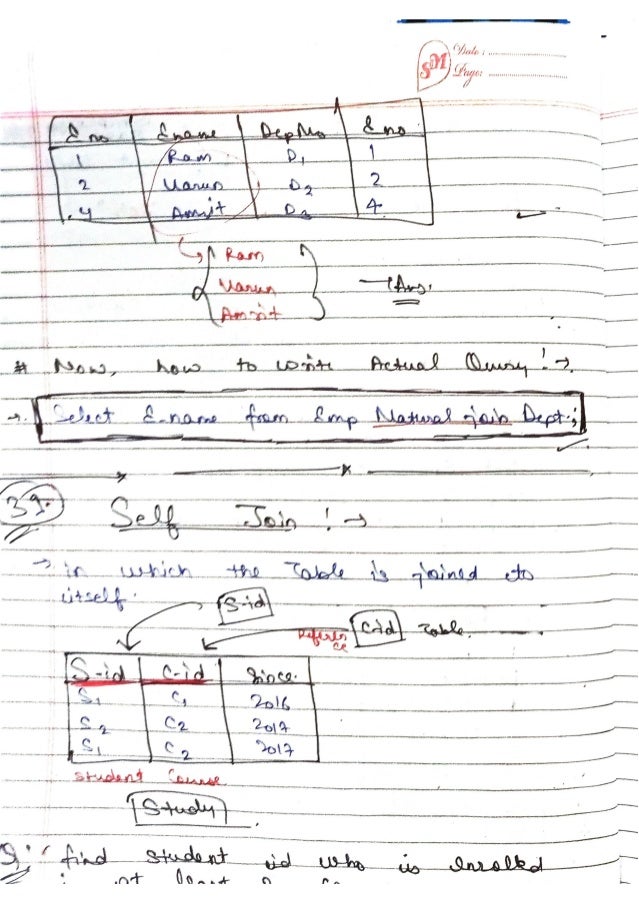 SM Date :
Page:
E no Ename Dep No E no
1 Ram D1 1
2 Varun D2 2
4 Amrit D3 4
Ram
Varun
Amrit
→ Ans.
# Now, how to write Actual Query! →
→ Select E-name from Emp Natural join Dept;
39. Self Join ! →
→ in which the Table is joined to
itself.
S-id
Reference C-id Table.
S-id C-id Since
S1 C1 2016
S2 C2 2017
S1 C2 2017
Student Course
Study
Q: find student id who is enrolled